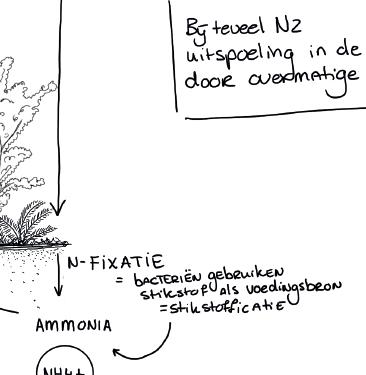 Bij teveel N2
uitspoeling in de
door overmatige
N-FIXATIE
= BACTERIËN gebruiken
stikstof als voedingsbron
= stikstofficatie
AMMONIA
NH4+